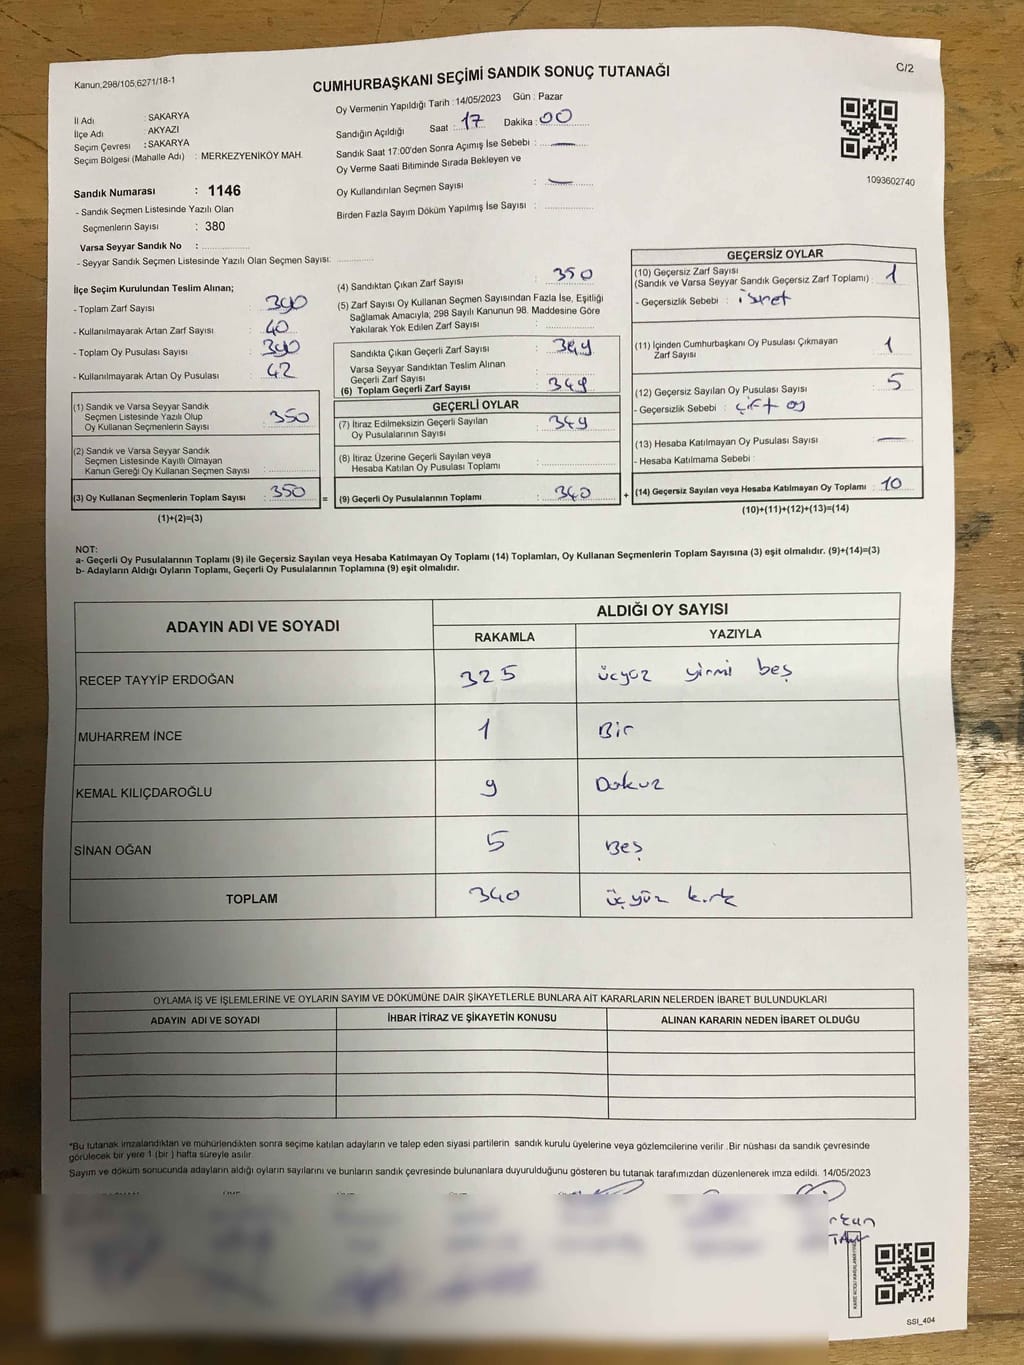 Kanun,298/105,6271/18-1
C/2
CUMHURBAŞKANI SEÇİMİ SANDIK SONUÇ TUTANAĞI
İl Adı : SAKARYA
İlçe Adı : AKYAZI
Seçim Çevresi : SAKARYA
Seçim Bölgesi (Mahalle Adı) : MERKEZYENİKÖY MAH.
Oy Vermenin Yapıldığı Tarih : 14/05/2023 Gün : Pazar
Sandığın Açıldığı Saat : 17 Dakika : 00
Sandık Saat 17:00'den Sonra Açımış İse Sebebi : —
Oy Verme Saati Bitiminde Sırada Bekleyen ve
Oy Kullandırılan Seçmen Sayısı : —
Birden Fazla Sayım Döküm Yapılmış İse Sayısı :
1093602740
Sandık Numarası : 1146
- Sandık Seçmen Listesinde Yazılı Olan
Seçmenlerin Sayısı : 380
Varsa Seyyar Sandık No :
- Seyyar Sandık Seçmen Listesinde Yazılı Olan Seçmen Sayısı:
İlçe Seçim Kurulundan Teslim Alınan;
- Toplam Zarf Sayısı : 390
- Kullanılmayarak Artan Zarf Sayısı : 40
- Toplam Oy Pusulası Sayısı : 390
- Kullanılmayarak Artan Oy Pusulası : 42
(1) Sandık ve Varsa Seyyar Sandık
Seçmen Listesinde Yazılı Olup
Oy Kullanan Seçmenlerin Sayısı : 350
(2) Sandık ve Varsa Seyyar Sandık
Seçmen Listesinde Kayıtlı Olmayan
Kanun Gereği Oy Kullanan Seçmen Sayısı :
(3) Oy Kullanan Seçmenlerin Toplam Sayısı : 350
(1)+(2)=(3)
(4) Sandıktan Çıkan Zarf Sayısı : 350
(5) Zarf Sayısı Oy Kullanan Seçmen Sayısından Fazla İse, Eşitliği
Sağlamak Amacıyla; 298 Sayılı Kanunun 98. Maddesine Göre
Yakılarak Yok Edilen Zarf Sayısı :
Sandıkta Çıkan Geçerli Zarf Sayısı : 349
Varsa Seyyar Sandıktan Teslim Alınan
Geçerli Zarf Sayısı :
(6) Toplam Geçerli Zarf Sayısı : 349
GEÇERLİ OYLAR
(7) İtiraz Edilmeksizin Geçerli Sayılan
Oy Pusulalarının Sayısı : 349
(8) İtiraz Üzerine Geçerli Sayılan veya
Hesaba Katılan Oy Pusulası Toplamı :
= (9) Geçerli Oy Pusulalarının Toplamı : 340
GEÇERSİZ OYLAR
(10) Geçersiz Zarf Sayısı
(Sandık ve Varsa Seyyar Sandık Geçersiz Zarf Toplamı) : 1
- Geçersizlik Sebebi : işret
(11) İçinden Cumhurbaşkanı Oy Pusulası Çıkmayan
Zarf Sayısı : 1
(12) Geçersiz Sayılan Oy Pusulası Sayısı : 5
- Geçersizlik Sebebi : çift oy
(13) Hesaba Katılmayan Oy Pusulası Sayısı : —
- Hesaba Katılmama Sebebi :
+ (14) Geçersiz Sayılan veya Hesaba Katılmayan Oy Toplamı : 10
(10)+(11)+(12)+(13)=(14)
NOT:
a- Geçerli Oy Pusulalarının Toplamı (9) ile Geçersiz Sayılan veya Hesaba Katılmayan Oy Toplamı (14) Toplamları, Oy Kullanan Seçmenlerin Toplam Sayısına (3) eşit olmalıdır. (9)+(14)=(3)
b- Adayların Aldığı Oyların Toplamı, Geçerli Oy Pusulalarının Toplamına (9) eşit olmalıdır.
ADAYIN ADI VE SOYADI
ALDIĞI OY SAYISI
RAKAMLA YAZIYLA
RECEP TAYYİP ERDOĞAN 325 üçyüz yirmi beş
MUHARREM İNCE 1 Bir
KEMAL KILIÇDAROĞLU 9 Dokuz
SİNAN OĞAN 5 Beş
TOPLAM 340 üçyüz kırk
OYLAMA İŞ VE İŞLEMLERİNE VE OYLARIN SAYIM VE DÖKÜMÜNE DAİR ŞİKAYETLERLE BUNLARA AİT KARARLARIN NELERDEN İBARET BULUNDUKLARI
ADAYIN ADI VE SOYADI İHBAR İTİRAZ VE ŞİKAYETİN KONUSU ALINAN KARARIN NEDEN İBARET OLDUĞU
*Bu tutanak imzalandıktan ve mühürlendikten sonra seçime katılan adayların ve talep eden siyasi partilerin sandık kurulu üyelerine veya gözlemcilerine verilir .Bir nüshası da sandık çevresinde
görülecek bir yere 1 (bir ) hafta süreyle asılır.
Sayım ve döküm sonucunda adayların aldığı oyların sayılarını ve bunların sandık çevresinde bulunanlara duyurulduğunu gösteren bu tutanak tarafımızdan düzenlenerek imza edildi. 14/05/2023
SSI_404